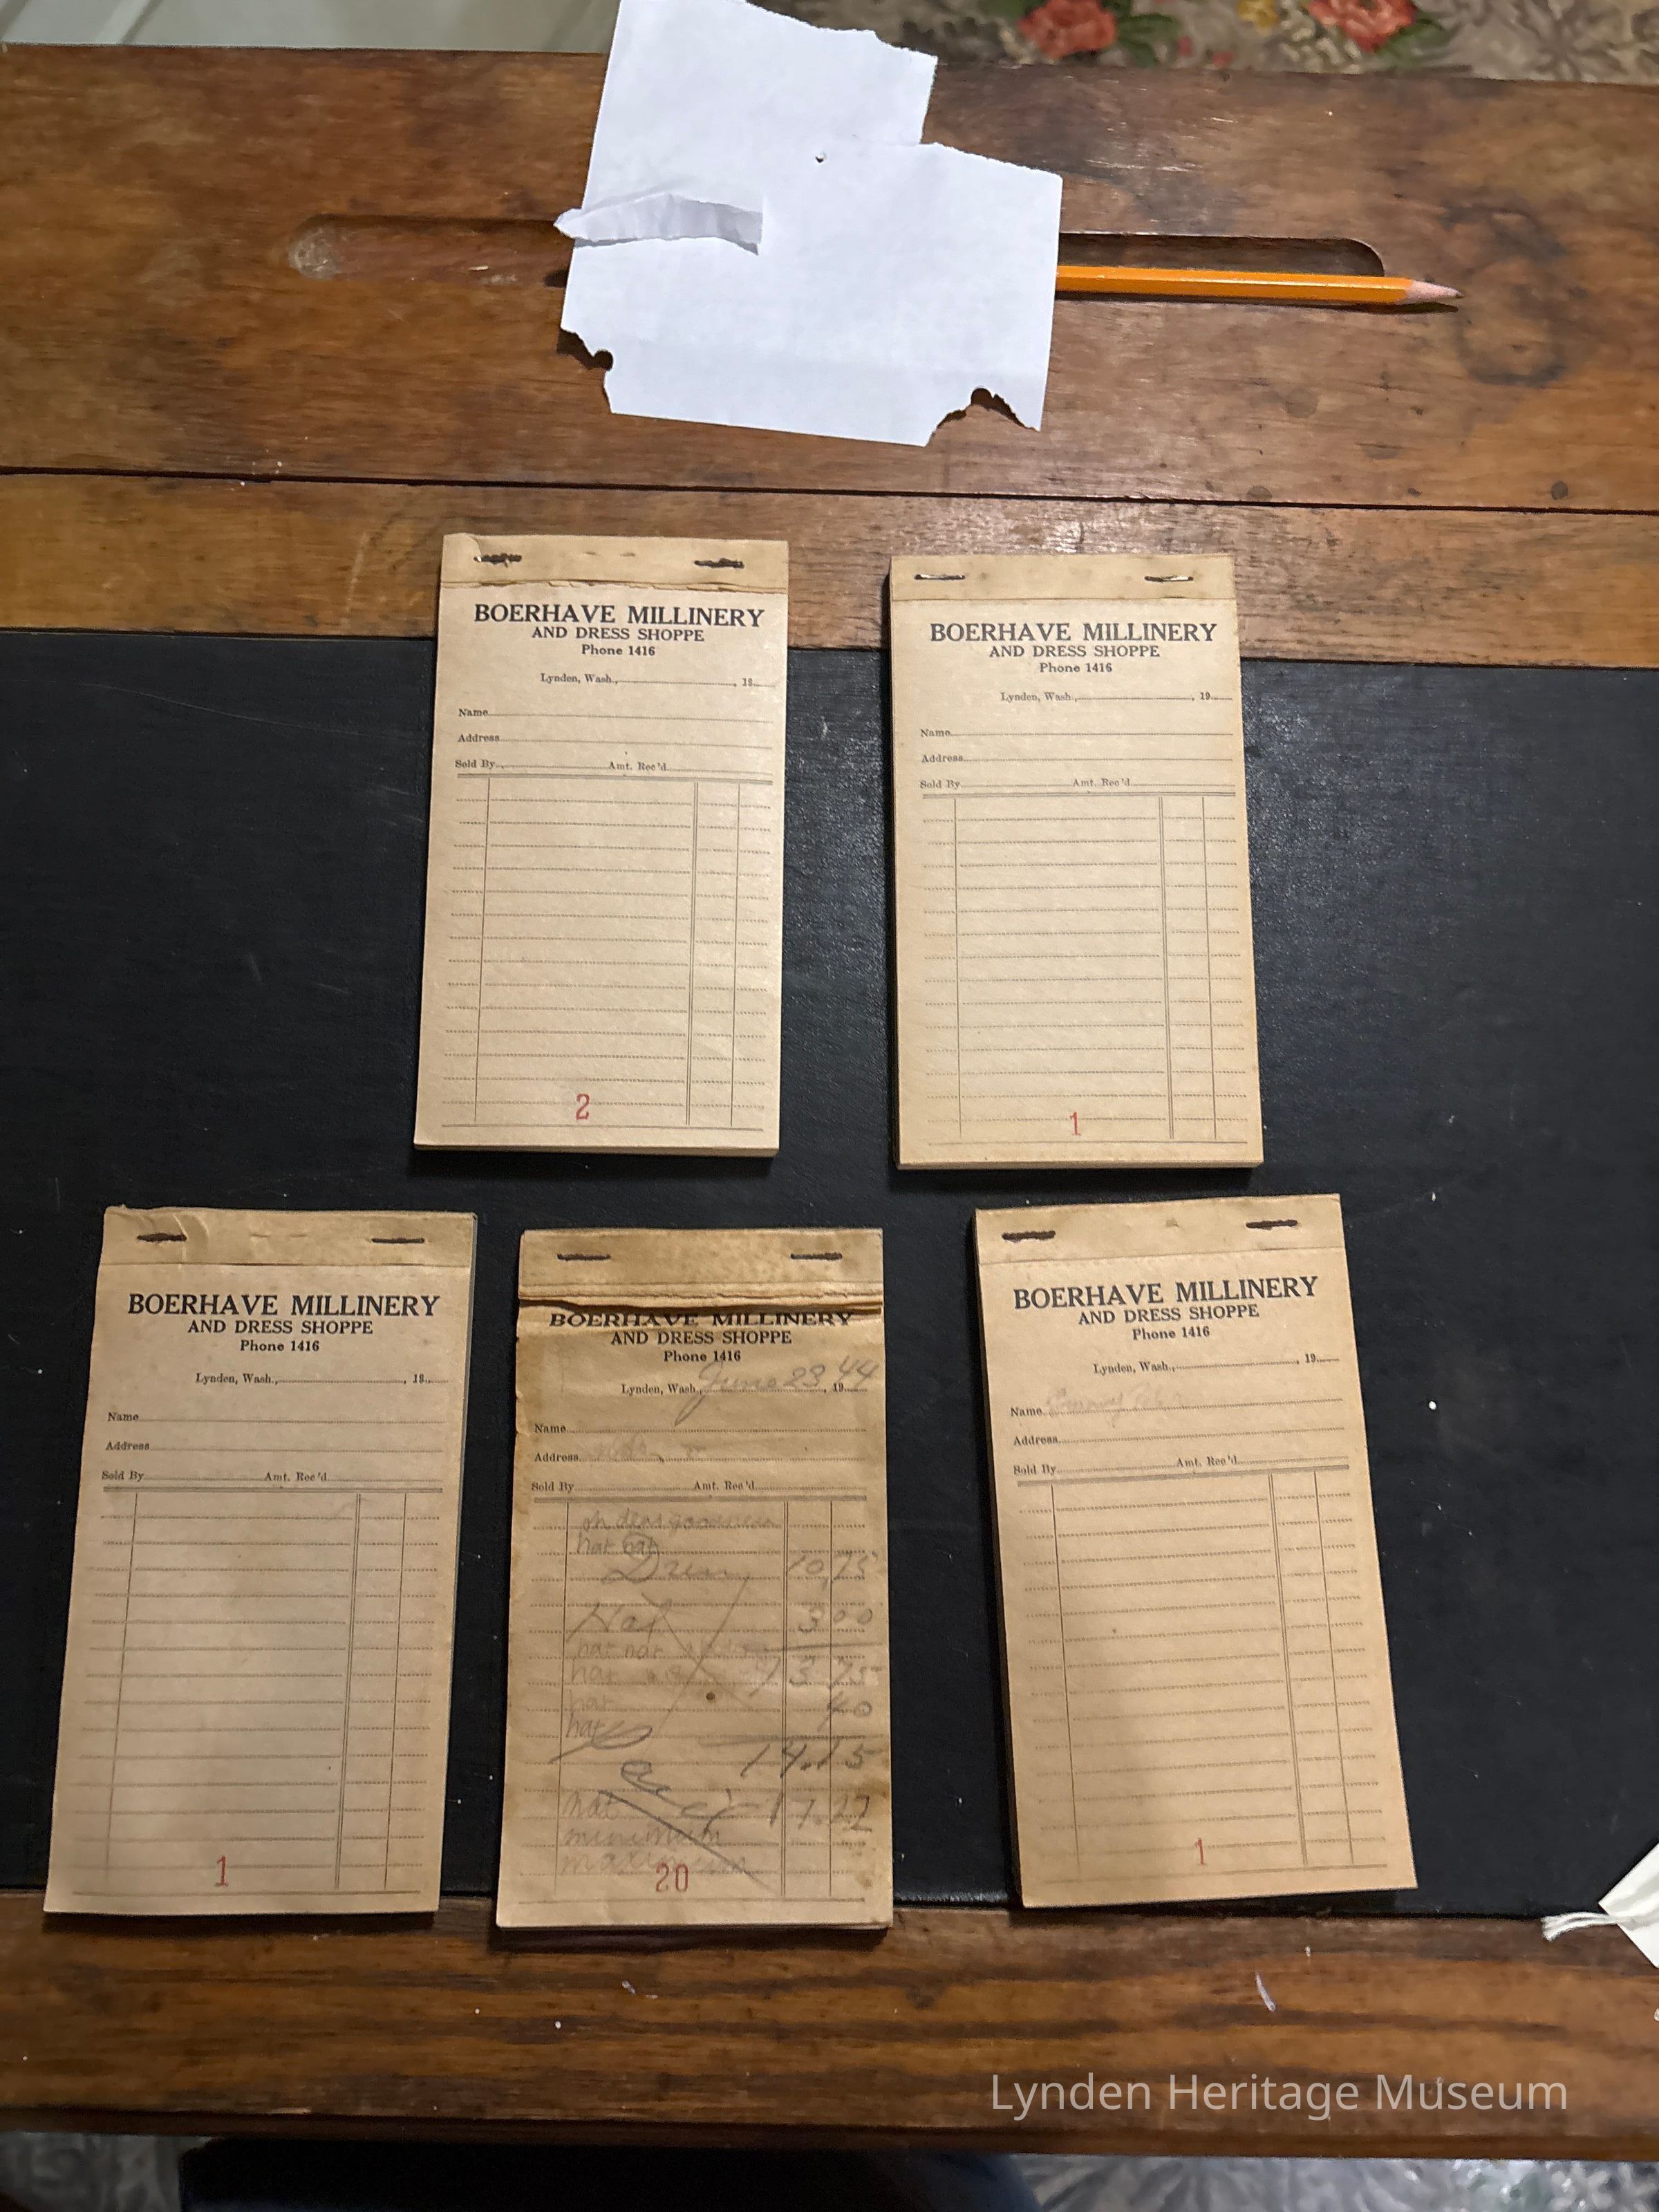 BOERHAVE MILLINERY
AND DRESS SHOPPE
Phone 1416
Lynden, Wash., , 19
Name
Address
Sold By Amt. Rec'd
2
BOERHAVE MILLINERY
AND DRESS SHOPPE
Phone 1416
Lynden, Wash., , 19
Name
Address
Sold By Amt. Rec'd
1
BOERHAVE MILLINERY
AND DRESS SHOPPE
Phone 1416
Lynden, Wash., , 19
Name
Address
Sold By Amt. Rec'd
1
BOERHAVE MILLINERY
AND DRESS SHOPPE
Phone 1416
Lynden, Wash., June 23, 1944
Name
Address
Sold By Amt. Rec'd
oh dear goodness
hat hat
Dress 10,75
Hat 3 00
hat hat
hat 13 75
hat 40
hat
14.15
hat 17.22
minimum
20
BOERHAVE MILLINERY
AND DRESS SHOPPE
Phone 1416
Lynden, Wash., , 19
Name
Address
Sold By Amt. Rec'd
1
Lynden Heritage Museum